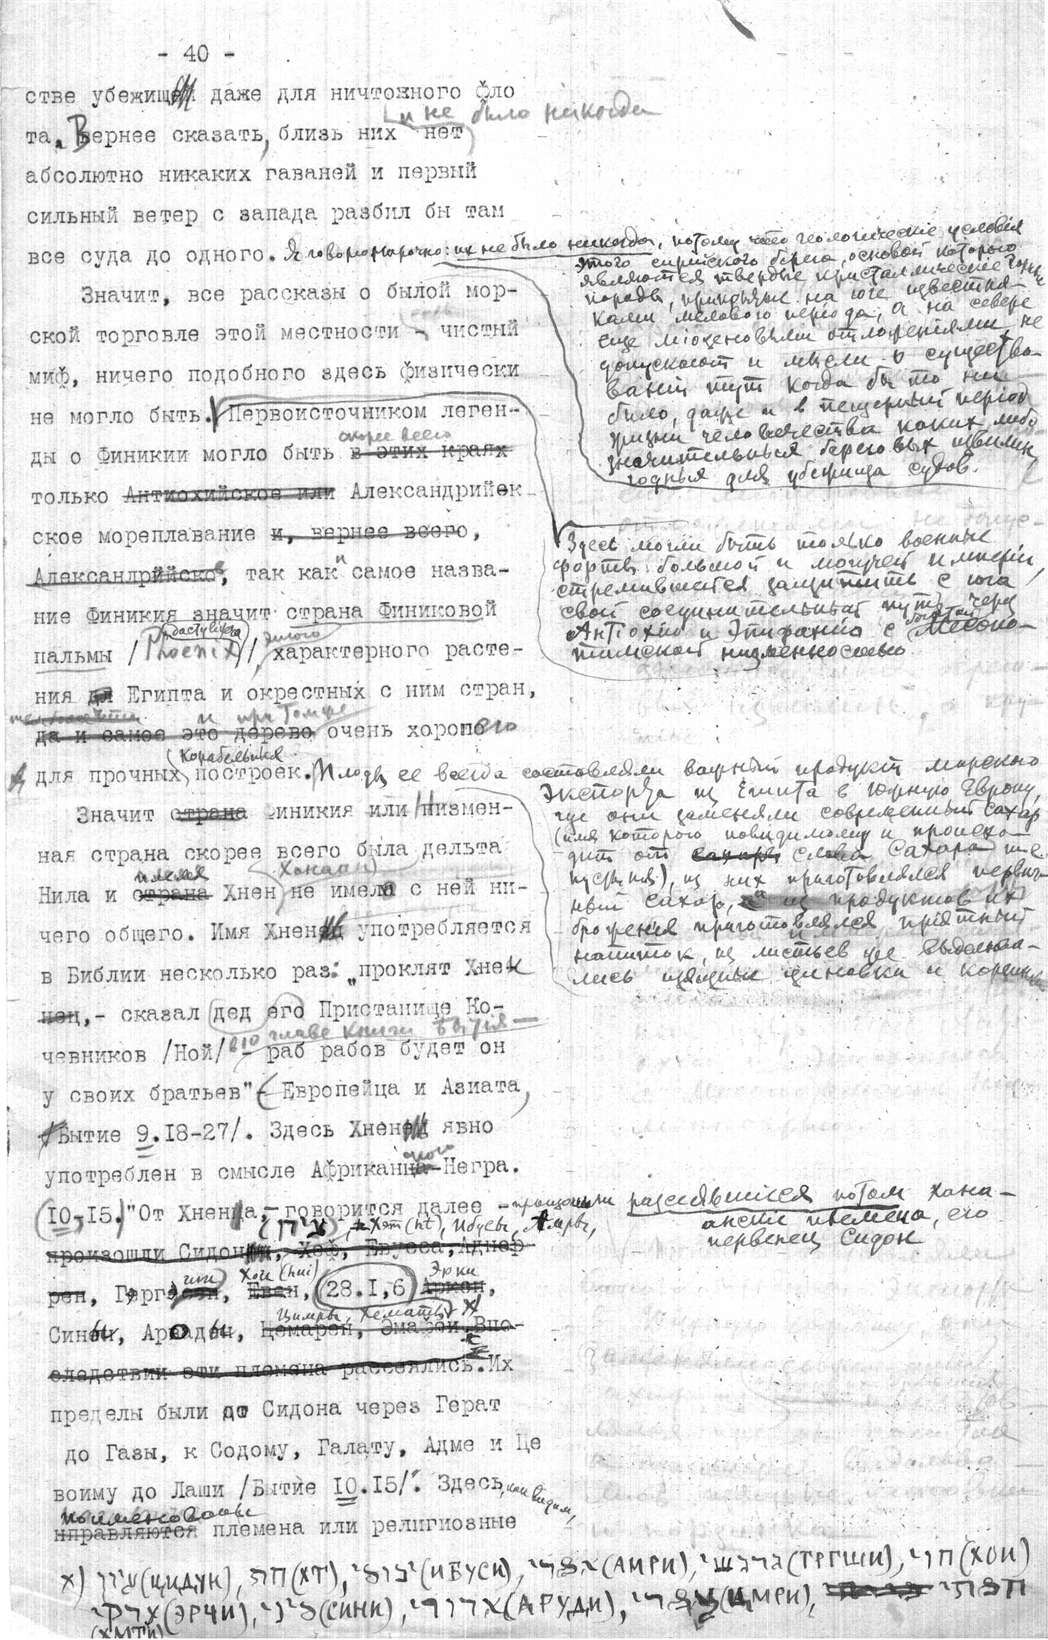 - 40 -
стве убежищем даже для ничтожного фло
та. Вернее сказать, близь них нет
и не было никогда
абсолютно никаких гаваней и первый
сильный ветер с запада разбил бы там
все суда до одного. Я говорю нарочно: их не было никогда, потому что геологические условия
этого сирийского берега, основой которого
являются твердые кристаллические горн.
породы, прикрытые на юге известня-
ками мелового периода, а на севере
еще міоценовыми отложеніями, не
допускают и мысли о существо-
вании тут когда бы то ни
было, даже и в пещерный период
жизни человечества каких либо
значительных береговых извилин,
годных для убежища судов.
Значит, все рассказы о былой мор-
ской торговле этой местности - чистый
миф, ничего подобного здесь физически
не могло быть. Первоисточником леген-
ды о Финикии могло быть в этих краях
скорее всего
только Антиохийское или Александрийск
ское мореплавание и, вернее всего,
Александрийское, так как и самое назва-
ние Финикия значит страна Финиковой
пальмы /Phoenix dactylifera/, этого характерного расте-
ния для Египта и окрестных с ним стран,
да и самое это дерево очень хорошего
и при томже
для прочных корабельных построек. Плоды ее всегда составляли важный продукт морского
экспорта из Египта в Южную Европу,
где они заменяли современный сахар
(имя которого повидимому и происхо-
дит от слова Сахара т. е.
пустыня), из них приготовлялся первич-
ный сахар, а из продуктов их
брожения приготовлялся приятный
напиток, из листьев же выделыва-
лись изящные циновки и корзинки
Здесь могли быть только военные
форты большой и могучей империи,
стремившейся защитить с юга
свой соединительный путь через
Антіохию и Эпифанію с богатой Месопо-
тамской низменностью.
Значит страна Финикия или Низмен-
ная страна скорее всего была дельта
Нила и страна Хнен не имела с ней ни-
племя
(Ханаан)
чего общего. Имя Хнен употребляется
в Библии несколько раз: „проклят Хнен
нец,- сказал дед его Пристанище Ко-
в 10 главе книги Бытия —
чевников /Ной/ - раб рабов будет он
у своих братьев" - Европейца и Азиата,
/Бытие 9.18-27/. Здесь Хнен явно
употреблен в смысле Африканского-Негра.
(10,-15.) "От Хнена,- говорится далее - произошли рассеявшіеся потом Хана-
анские племена, его
первенец Сидон
Хэт (ht), Ибусы, Амры,
произошли Сидон, Хеф, Евусса, Аднеф
рен, Гэргаши, Евен, (28.I,6) Аркен,
Хои (hui)
Эрки
Синеы, Арвадеы, Цемарен, Эмафеи. Впо-
Цимры, Хематы
следствии эти племена рассеялись. Их
пределы были от Сидона через Герат
до Газы, к Содому, Галату, Адме и Це
воиму до Лаши /Бытие 10.15/. Здесь, как видим,
поименованы
нправляются племена или религиозные
(ЦИДУН), חת (ХТ), (ИБУСИ), (АМРИ), (ТРГШИ), חוי (ХОИ)
(ЭРЧИ), סיני (СИНИ), (АРУДИ), (ЦМРИ),
(ХМТИ)